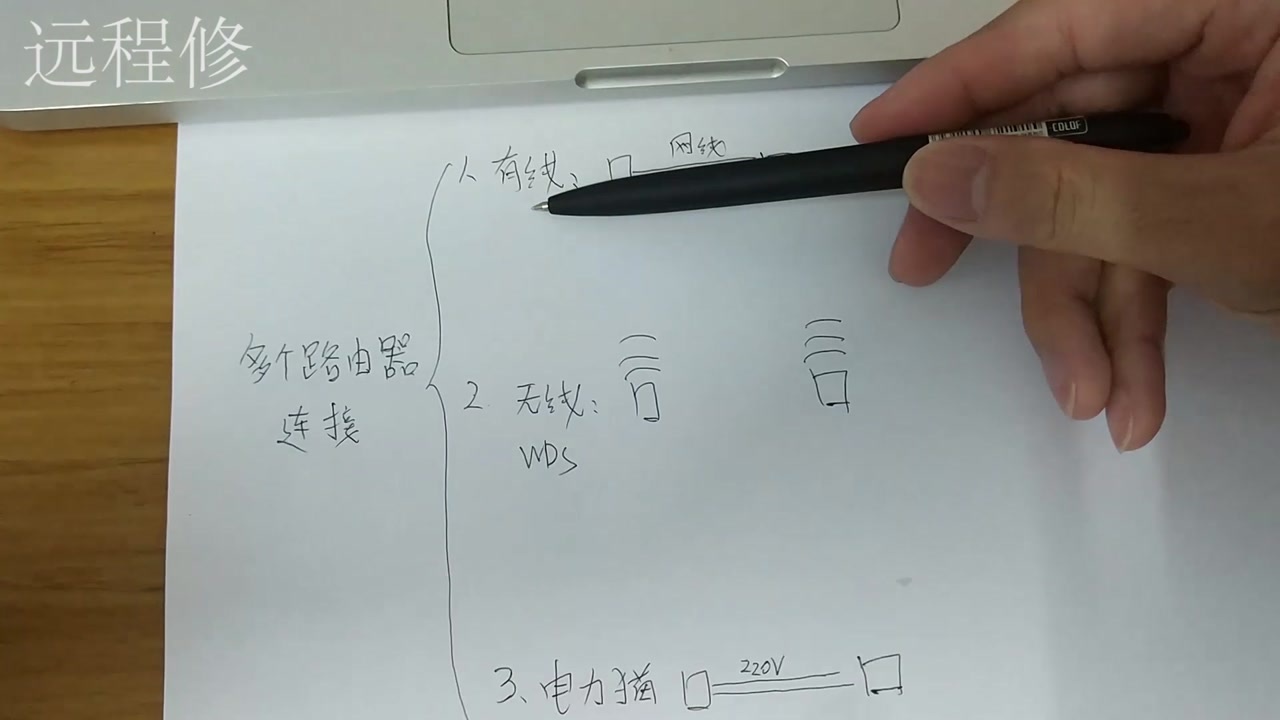 远程修
COLOF
网线
1、有线：
多个路由器
连接
2 无线：
WDS
220V
3、电力猫